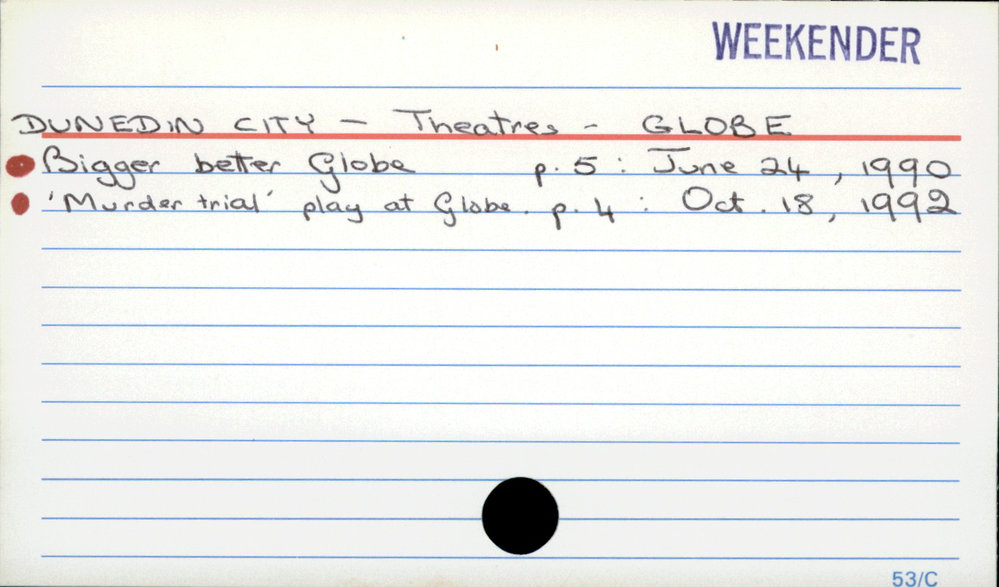 WEEKENDER
DUNEDIN CITY - Theatres - GLOBE
Bigger better Globe p. 5 : June 24, 1990
'Murder trial' play at Globe. p. 4 : Oct. 18, 1992
53/C